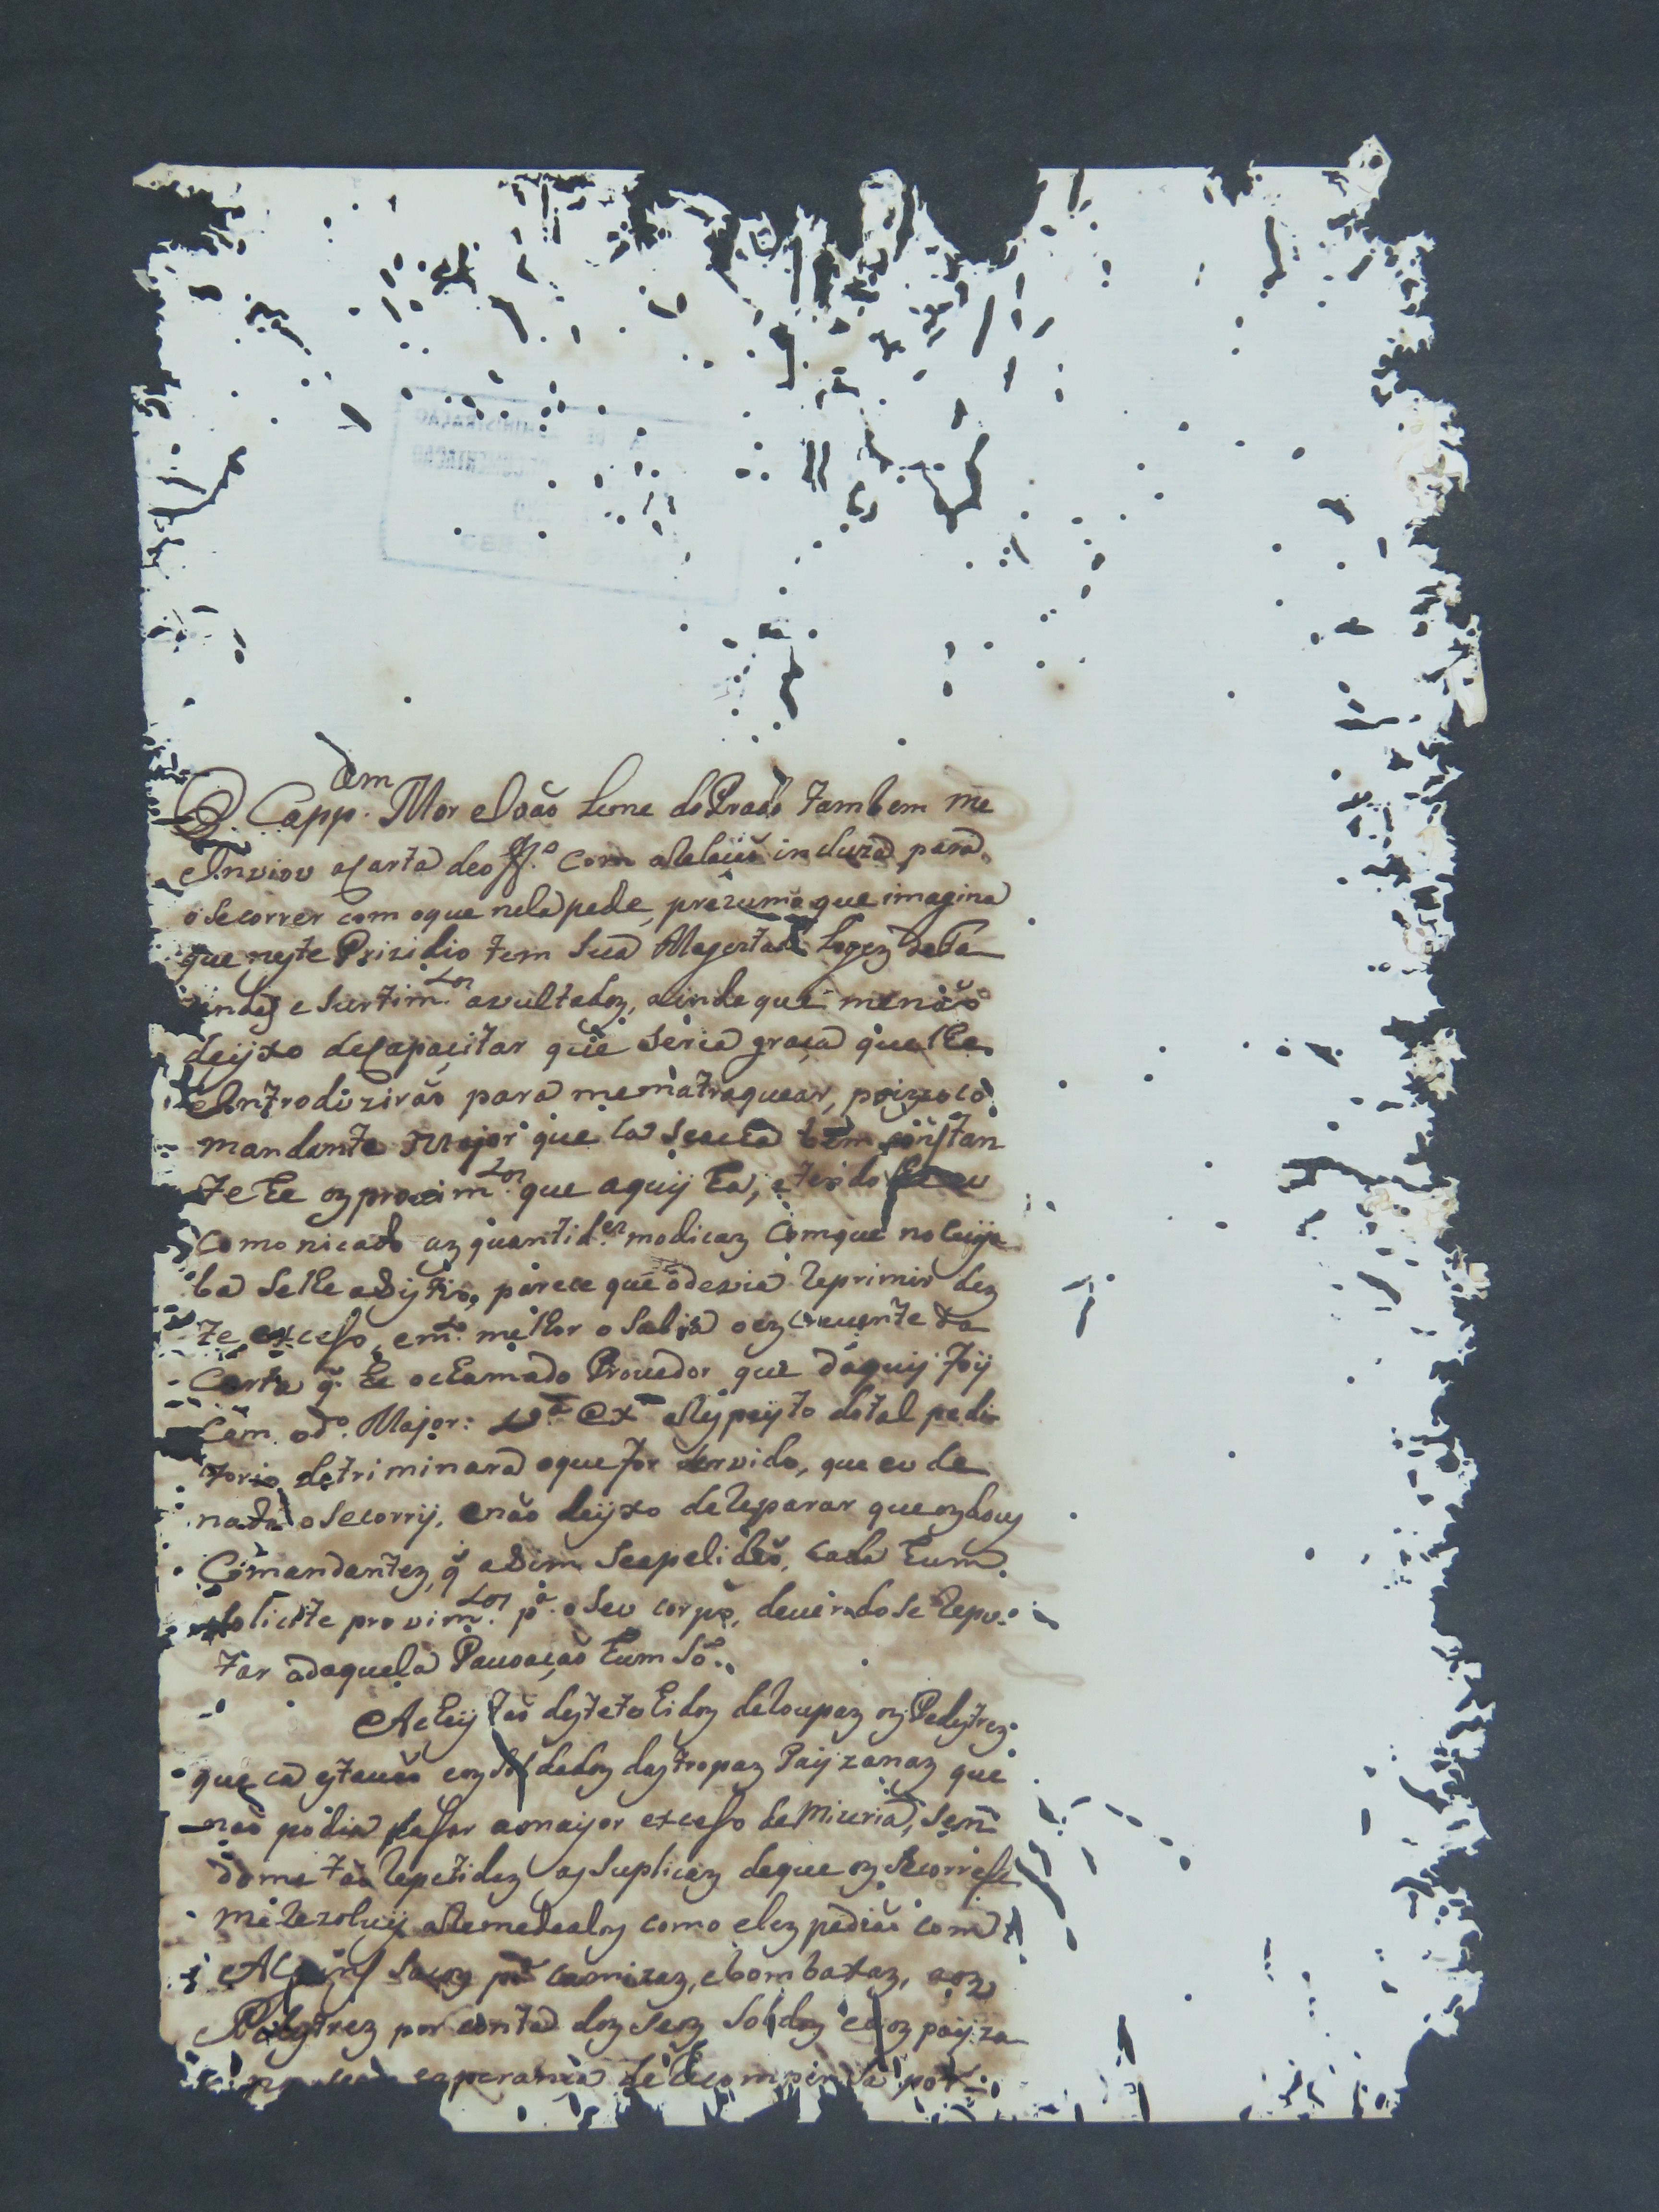 dem
O Capp. Mor João Leme do Prado tambem me
Enviou a Carta de off.º com a Relaçaõ incluza para
o Secorrer com o que nela pede, prezumo que imagina
que neste Prizidio tem Sua Magestad Logez de Fa
indas e Surtim.tos avultadoz, ainda que me não
deyxo deCapaçitar que seria graça que lhe
Introduzirão para mematraquear, poiz o Co
mandante Major que la se acha bem conztan
te he oz provim.tos que aquij ha, e tendo
Comonicado az quantid.es modicaz Com que no Cuija
ba Selhe adiztio, parece que o devia Reprimir dez
te exceso, em.to melhor o Sabia o ezcrevente da
Carta q. he o chamado Provedor que daquij foy
Com od.º Major: V.ª Ex.ª a Respeyto do tal pedi
torio detriminara oque for servido, que eu de
nada o Secorry, e não deyxo de Reparar que oz douz
Comandantez, q̃ asim Seapelidão, cada hum
Solicite provim.tos p.ª o Seu corpo, devendo Se Repu
tar adaquela Pauoação hum Só.
Achey tão deztetohidoz de Roupaz oz Pedeztrez
que ca eztavão e oz Soldadoz daz tropaz Payzanaz que
não podia pasar a mayor exceso de Mizeria, Sen
do me tão Repetidaz az Suplicaz de que oz Secorrese
me Rezolvy a Remedealoz como elez pedião com
Algunz Sacoz p.ª camizaz, e bombaxaz, aoz
Pedeztrez por conta doz Seoz Soldoz e aoz payza
esperança de Recompença por